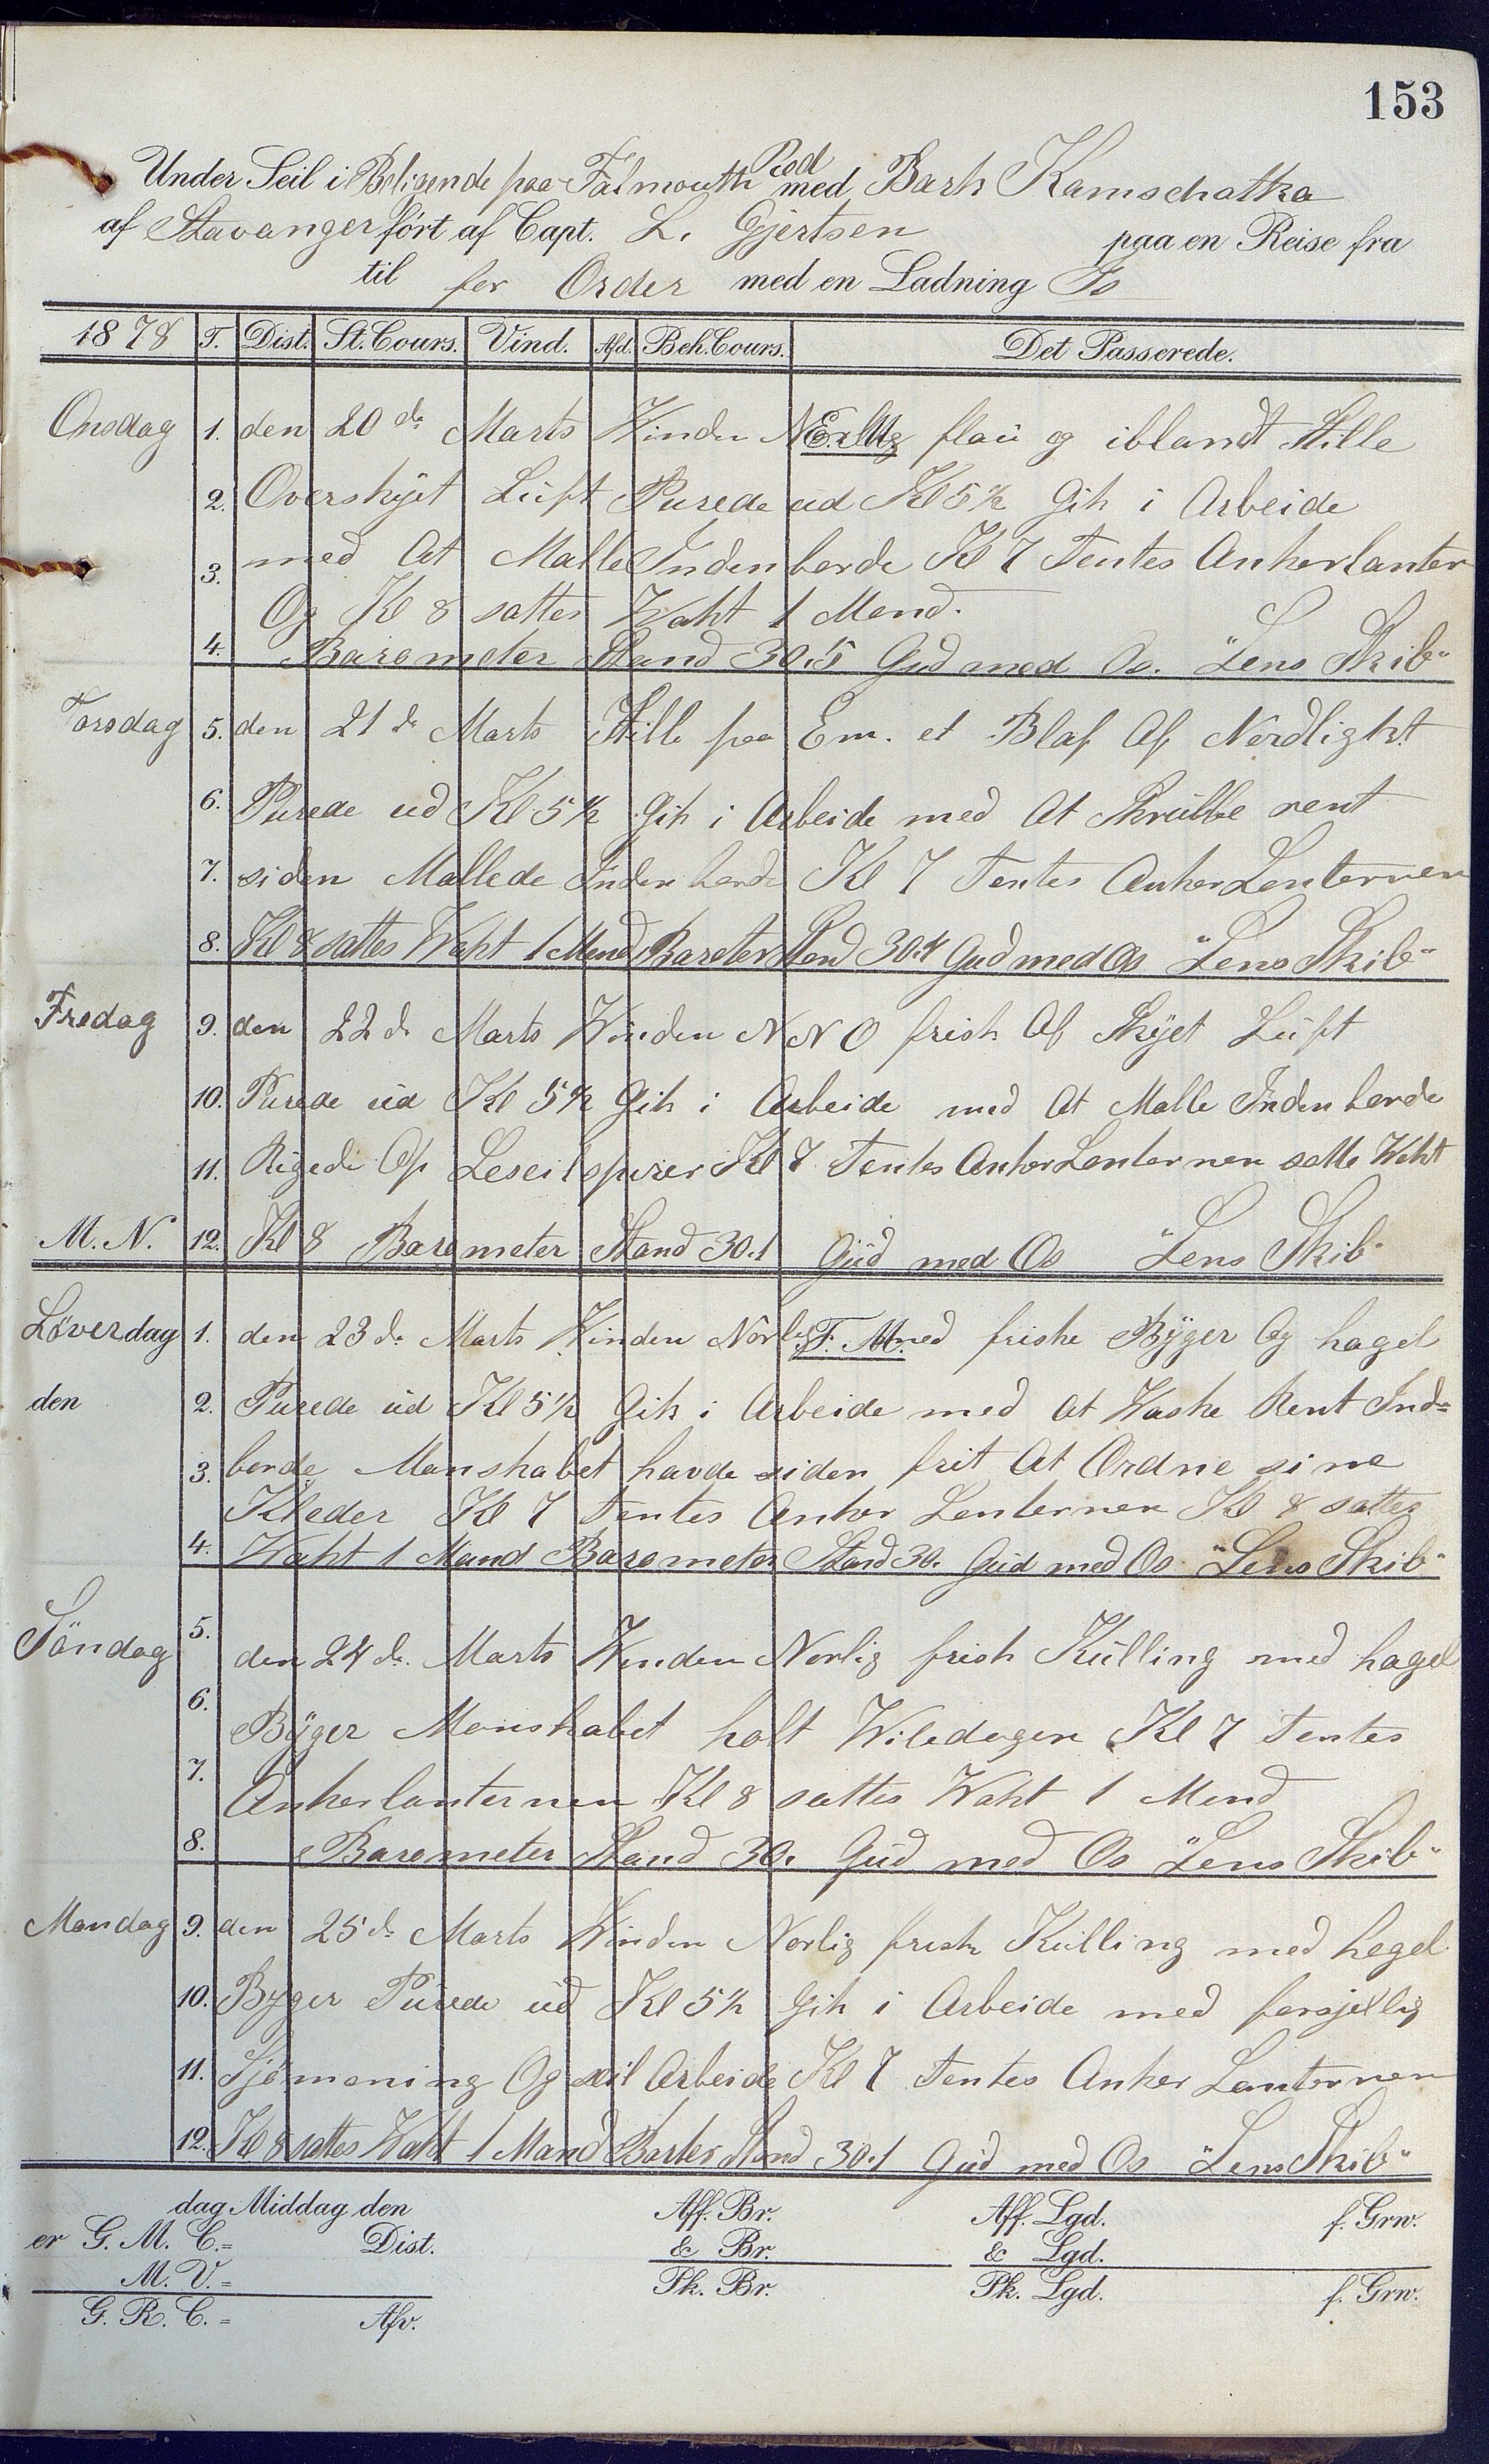 153
Under Seil i Beligende paa Falmouth Red med Bark Kamschatka
af Stavanger ført af Capt. L. Gjertsen paa en Reise fra
til for Order med en Ladning Is
1878 T. Dist. St. Cours. Vind. Afd. Beh. Cours. Det Passerede.
Onsdag 1. den 20de Marts Vinden NO. E.M. lig flau og iblandt Stille
2. Overskyet Luft Purede ud Kl 5½ Gik i Arbeide
3. med At Malle Indenborde Kl 7 Tentes Ankerlanter
Og Kl 8 sattes Waht 1 Mand.
4. Barometer Stand 30.5 Gud med Os. "Lens Skib"
Torsdag 5. den 21de Marts Stille paa Em. et Blaf Af Nordligt
6. Purede ud Kl 5½ Gik i Arbeide med At Skrubbe rent
7. siden Mallede Indenborde Kl 7 Tentes Anker Lenternen
8. Kl 8 sattes Waht 1 Mand Baroter Stand 30.4 Gud med Os "Lens Skib"
Fredag 9. den 22de Marts Winden NNO frisk Af Skyet Luft
10. Purede ud Kl 5½ Gik i Arbeide med At Malle Indenborde
11. Rigede Op Leseilspirer Kl 7 Tentes Anker Lenternen satte Waht
M. N. 12. Kl 8 Barometer Stand 30.1 Gud med Os "Lens Skib"
Löverdag 1. den 23de Marts Vinden Norlig F. M. med friske Byger Og hagel
den 2. Purede ud Kl 5½ Gik i Arbeide med at Waske Rent Ind=
3. borde Manskabet havde siden frit At Ordne sine
Kleder Kl 7 Tentes Anker Lenternen Kl 8 sattes
4. Waht 1 Mand Barometer Stand 30. Gud med Os "Lens Skib"
Söndag 5. den 24de Marts Winden Norlig frisk Kulling med hagel
6. Byger Manskabet holt Wiledagen Kl 7 Tentes
7. Ankerlanternen Kl 8 sattes Waht 1 Mand
8. Barometer Stand 30. Gud med Os "Lens Skib"
Mandag 9. den 25de Marts Winden Norlig frisk Kulling med hagel
10. Byger Purede ud Kl 5½ Gik i Arbeide med forsjellig
11. Sjømening Og seil Arbeide Kl 7 Tentes Anker Lanternen
12. Kl 8 sattes Waht 1 Mand Barter Stand 30.1 Gud med Os "Lens Skib"
dag Middag den Aff. Br. Aff. Lgd. f. Grw.
er G. M. C.= Dist. & Br. & Lgd.
M. V.= Pk. Br. Pk. Lgd. f. Grw.
G. R. C.= Afv.